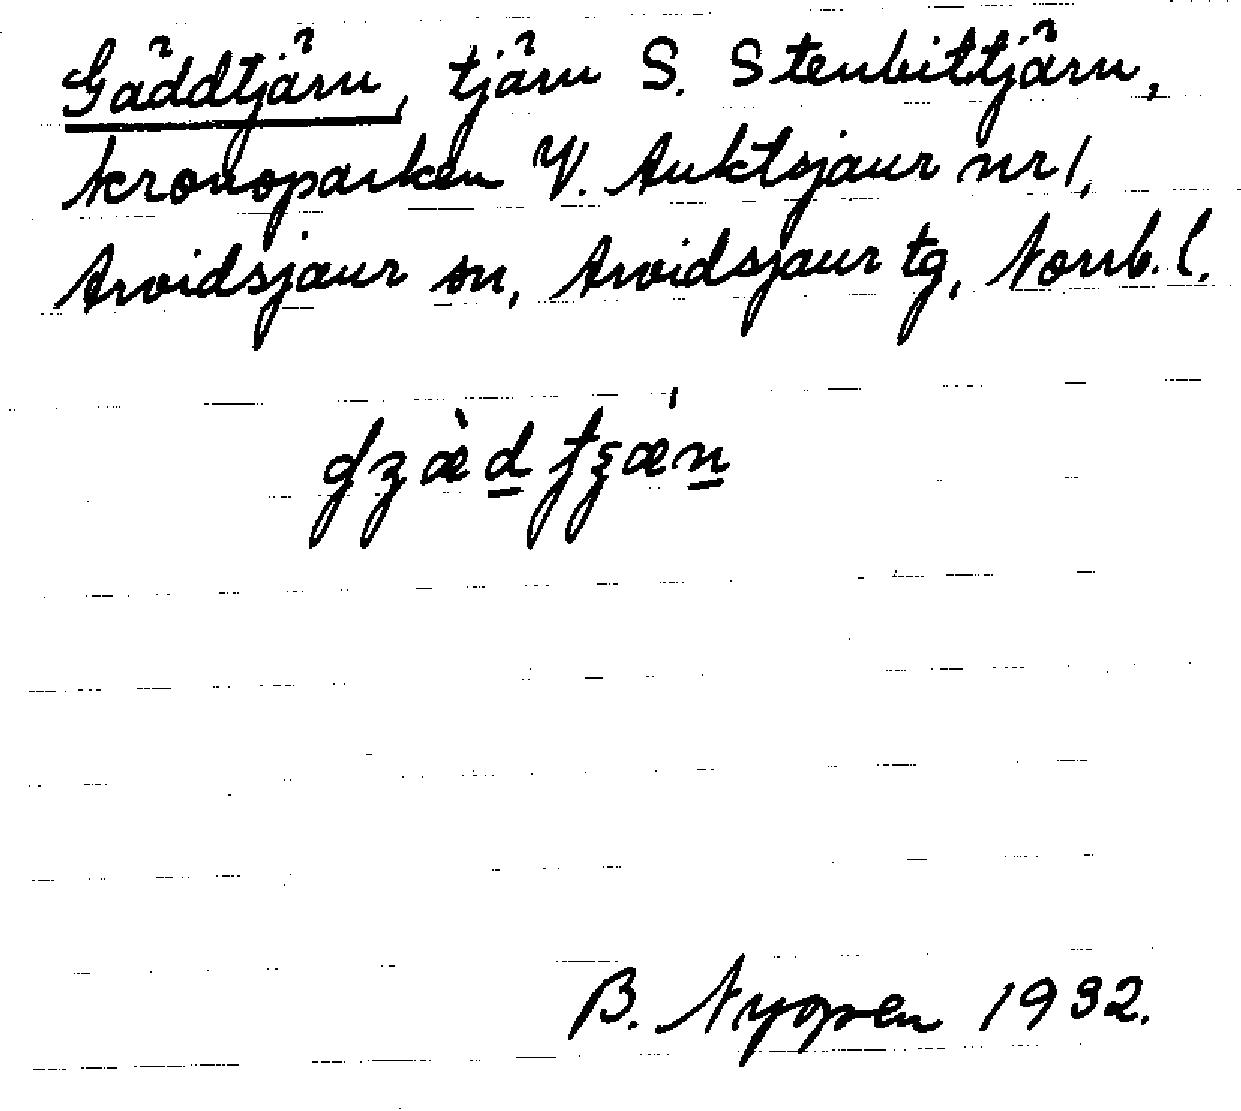 Gäddtjärn, tjärn S. Stenbittjärn,
kronoparken V. Auktsjaur nr 1,
Arvidsjaur sn, Arvidsjaur tg, Norrb. l.
B. Nygren 1932.